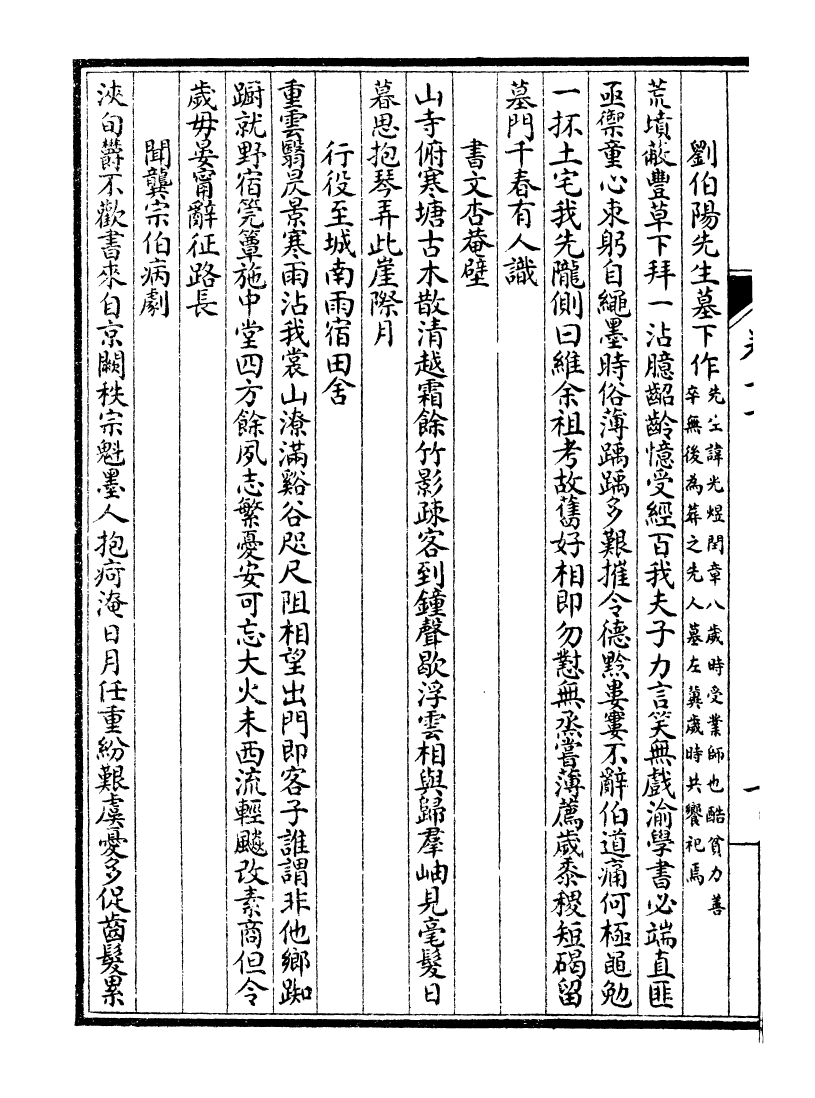 劉伯陽先生墓下作先生諱光煜閏章八歲時受業師也酷貧力善
卒無後為葬之先人墓左冀歲時共饗祀焉
荒墳蔽豐草下拜一沾臆齠齡憶受經百我夫子力言笑無戲渝學書必端直匪
亟禦童心束躬自繩墨時俗薄踽踽多艱摧令德黔婁寠不辭伯道痛何極黽勉
一抔土宅我先隴側曰維余祖考故舊好相即勿懟無烝嘗薄薦歲黍稷短碣留
墓門千春有人識
書文杏菴壁
山寺俯寒塘古木散清越霜餘竹影疎客到鐘聲歇浮雲相與歸羣岫見毫髮日
暮思抱琴弄此崖際月
行役至城南雨宿田舍
重雲翳晨景寒雨沾我裳山潦滿谿谷咫尺阻相望出門即客子誰謂非他鄉踟
蹰就野宿筦簟施中堂四方餘夙志繁憂安可忘大火未西流輕飈改素商但令
歲毋晏甯辭征路長
聞龔宗伯病劇
浹旬鬱不歡書來自京闕秩宗魁墨人抱疴淹日月任重紛艱虞憂多促齒髮累